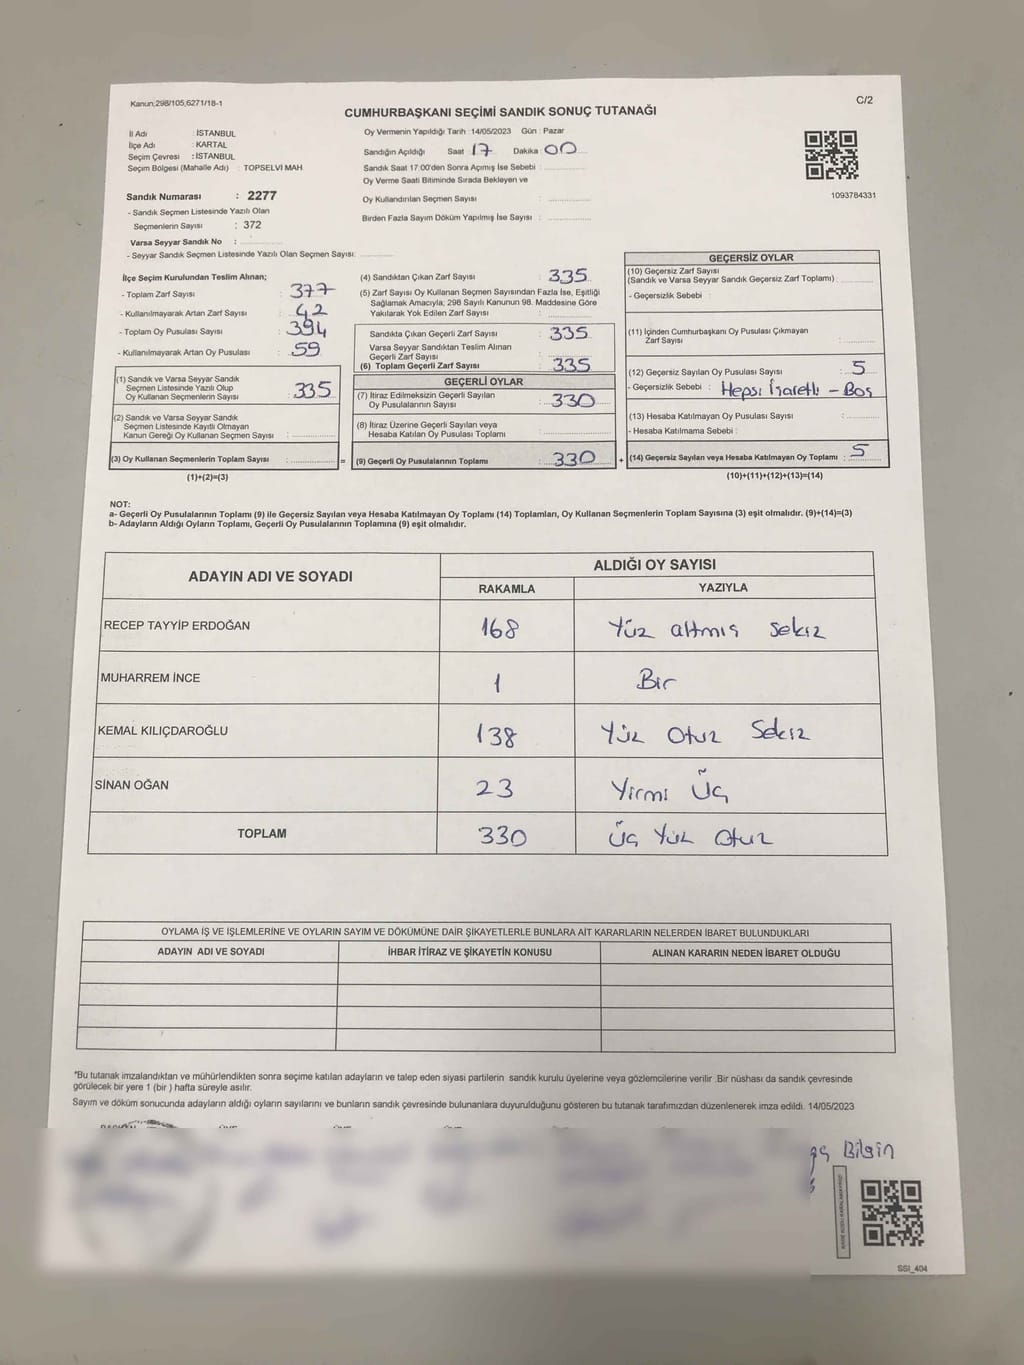 Kanun;298/105,6271/18-1
C/2
CUMHURBAŞKANI SEÇİMİ SANDIK SONUÇ TUTANAĞI
İl Adı : İSTANBUL
İlçe Adı : KARTAL
Seçim Çevresi : İSTANBUL
Seçim Bölgesi (Mahalle Adı) : TOPSELVİ MAH
Oy Vermenin Yapıldığı Tarih :14/05/2023 Gün : Pazar
Sandığın Açıldığı Saat : 17 Dakika : 00
Sandık Saat 17.00'den Sonra Açımış İse Sebebi :
Oy Verme Saati Bitiminde Sırada Bekleyen ve
Oy Kullandırılan Seçmen Sayısı :
Birden Fazla Sayım Döküm Yapılmış İse Sayısı :
1093784331
Sandık Numarası : 2277
- Sandık Seçmen Listesinde Yazılı Olan
Seçmenlerin Sayısı : 372
Varsa Seyyar Sandık No :
- Seyyar Sandık Seçmen Listesinde Yazılı Olan Seçmen Sayısı:
İlçe Seçim Kurulundan Teslim Alınan;
- Toplam Zarf Sayısı : 377
- Kullanılmayarak Artan Zarf Sayısı : 42
- Toplam Oy Pusulası Sayısı : 394
- Kullanılmayarak Artan Oy Pusulası : 59
(1) Sandık ve Varsa Seyyar Sandık
Seçmen Listesinde Yazılı Olup
Oy Kullanan Seçmenlerin Sayısı : 335
(2) Sandık ve Varsa Seyyar Sandık
Seçmen Listesinde Kayıtlı Olmayan
Kanun Gereği Oy Kullanan Seçmen Sayısı :
(3) Oy Kullanan Seçmenlerin Toplam Sayısı : =
(1)+(2)=(3)
(4) Sandıktan Çıkan Zarf Sayısı : 335
(5) Zarf Sayısı Oy Kullanan Seçmen Sayısından Fazla İse, Eşitliği
Sağlamak Amacıyla; 298 Sayılı Kanunun 98. Maddesine Göre
Yakılarak Yok Edilen Zarf Sayısı :
Sandıkta Çıkan Geçerli Zarf Sayısı : 335
Varsa Seyyar Sandıktan Teslim Alınan
Geçerli Zarf Sayısı :
(6) Toplam Geçerli Zarf Sayısı : 335
GEÇERLİ OYLAR
(7) İtiraz Edilmeksizin Geçerli Sayılan
Oy Pusulalarının Sayısı : 330
(8) İtiraz Üzerine Geçerli Sayılan veya
Hesaba Katılan Oy Pusulası Toplamı :
(9) Geçerli Oy Pusulalarının Toplamı : 330 +
GEÇERSİZ OYLAR
(10) Geçersiz Zarf Sayısı
(Sandık ve Varsa Seyyar Sandık Geçersiz Zarf Toplamı) :
- Geçersizlik Sebebi :
(11) İçinden Cumhurbaşkanı Oy Pusulası Çıkmayan
Zarf Sayısı :
(12) Geçersiz Sayılan Oy Pusulası Sayısı : 5
- Geçersizlik Sebebi : Hepsi İşaretli - Boş
(13) Hesaba Katılmayan Oy Pusulası Sayısı :
- Hesaba Katılmama Sebebi :
(14) Geçersiz Sayılan veya Hesaba Katılmayan Oy Toplamı : 5
(10)+(11)+(12)+(13)=(14)
NOT:
a- Geçerli Oy Pusulalarının Toplamı (9) ile Geçersiz Sayılan veya Hesaba Katılmayan Oy Toplamı (14) Toplamları, Oy Kullanan Seçmenlerin Toplam Sayısına (3) eşit olmalıdır. (9)+(14)=(3)
b- Adayların Aldığı Oyların Toplamı, Geçerli Oy Pusulalarının Toplamına (9) eşit olmalıdır.
ADAYIN ADI VE SOYADI
ALDIĞI OY SAYISI
RAKAMLA YAZIYLA
RECEP TAYYİP ERDOĞAN 168 Yüz altmış sekiz
MUHARREM İNCE 1 Bir
KEMAL KILIÇDAROĞLU 138 Yüz Otuz Sekiz
SİNAN OĞAN 23 Yirmi Üç
TOPLAM 330 Üç Yüz Otuz
OYLAMA İŞ VE İŞLEMLERİNE VE OYLARIN SAYIM VE DÖKÜMÜNE DAİR ŞİKAYETLERLE BUNLARA AİT KARARLARIN NELERDEN İBARET BULUNDUKLARI
ADAYIN ADI VE SOYADI İHBAR İTİRAZ VE ŞİKAYETİN KONUSU ALINAN KARARIN NEDEN İBARET OLDUĞU
*Bu tutanak imzalandıktan ve mühürlendikten sonra seçime katılan adayların ve talep eden siyasi partilerin sandık kurulu üyelerine veya gözlemcilerine verilir .Bir nüshası da sandık çevresinde
görülecek bir yere 1 (bir ) hafta süreyle asılır.
Sayım ve döküm sonucunda adayların aldığı oyların sayılarını ve bunların sandık çevresinde bulunanlara duyurulduğunu gösteren bu tutanak tarafımızdan düzenlenerek imza edildi. 14/05/2023
Bilgin
SSI_404